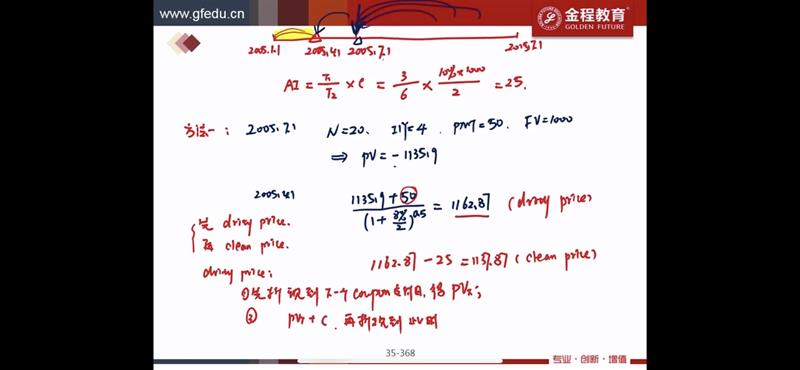 www.gfedu.cn
金程教育
GOLDEN FUTURE
2005.1.1 2005.4.1 2005.7.1 2015.7.1
AI = T₁/T₂ × C = 3/6 × 10%×1000/2 = 25.
方法一: 2005.7.1 N=20. I/Y=4. PMT=50. FV=1000
⇒ PV = -1135.9
2005.4.1 1135.9+50/(1+8%/2)^0.5 = 1162.87 (dirty price)
先 dirty price.
再 clean price.
1162.87 - 25 = 1137.87 (clean price)
dirty price:
①先折现到下一个coupon支付日, 得 PV;
② PV + C. 再折现到
35-368
专业·创新·增值